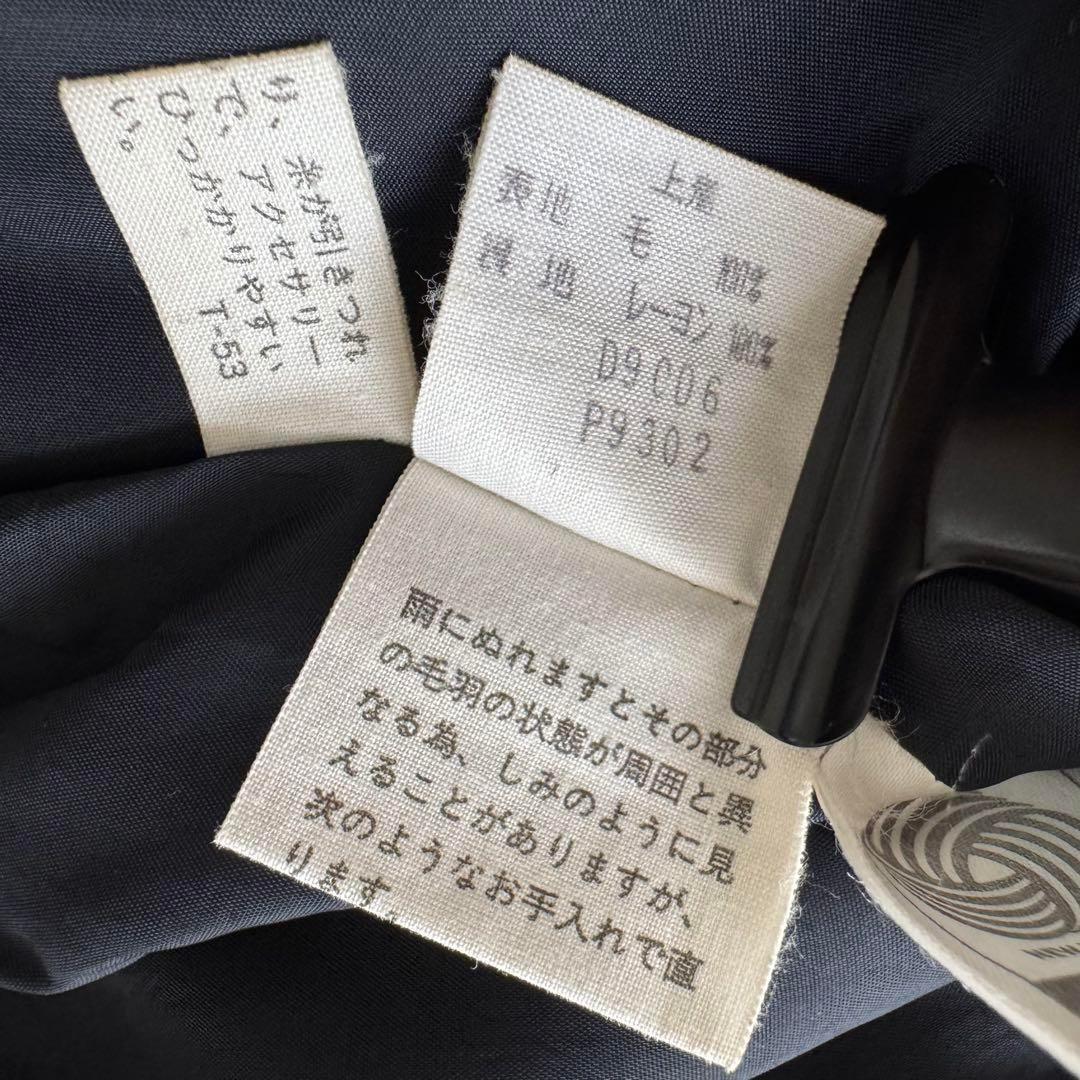 糸が引きつれ
り、アクセサリー
で、ひっかかりやすい
い。
T-53
上着
表地 毛 100%
裏地 レーヨン 100%
D9CD6
P9302
雨にぬれますとその部分
の毛羽の状態が周囲と異
なる為、しみのように見
えることがありますが、
次のようなお手入れで直
ります。